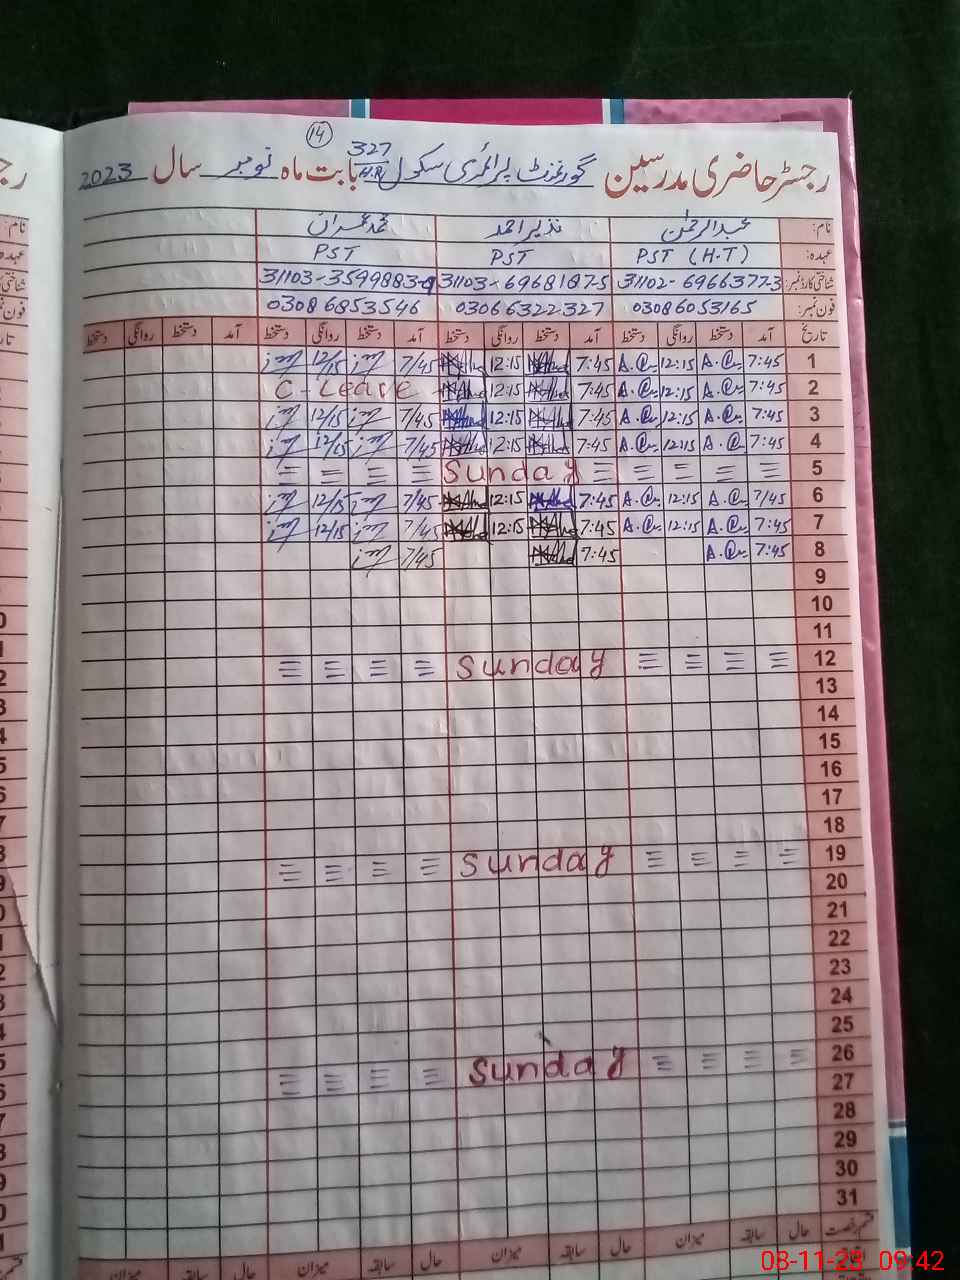 14
رجسٹر حاضری مدرسین گورنمنٹ پرائمری سکول 327/H.R بابت ماہ نومبر سال 2023
نام: عبدالرحمٰن نذیر احمد محمد عمران
عہدہ: PST (H.T) PST PST
شناختی کارڈ نمبر: 31102-6966377-3 31103-6968187-5 31103-3599883-9
فون نمبر: 03086053165 03066322327 03086853546
تاریخ آمد دستخط روانگی دستخط آمد دستخط روانگی دستخط آمد دستخط روانگی دستخط آمد دستخط روانگی دستخط
1 7:45 12:15 7:45 12:15 7/45 12/15
2 7:45 12:15 7:45 12:15 C-Leave
3 7:45 12:15 7:45 12:15 7/45 12/15
4 7:45 12:15 7:45 12:15 7/45 12/15
5 Sunday
6 7/45 12:15 7:45 12:15 7/45 12/15
7 7:45 12:15 7:45 12:15 7/45 12/15
8 7:45 7:45 7/45
9
10
11
12 Sunday
13
14
15
16
17
18
19 Sunday
20
21
22
23
24
25
26 Sunday
27
28
29
30
31
قسم رخصت حال سابقہ میزان حال سابقہ میزان حال سابقہ میزان
08-11-23 09:42